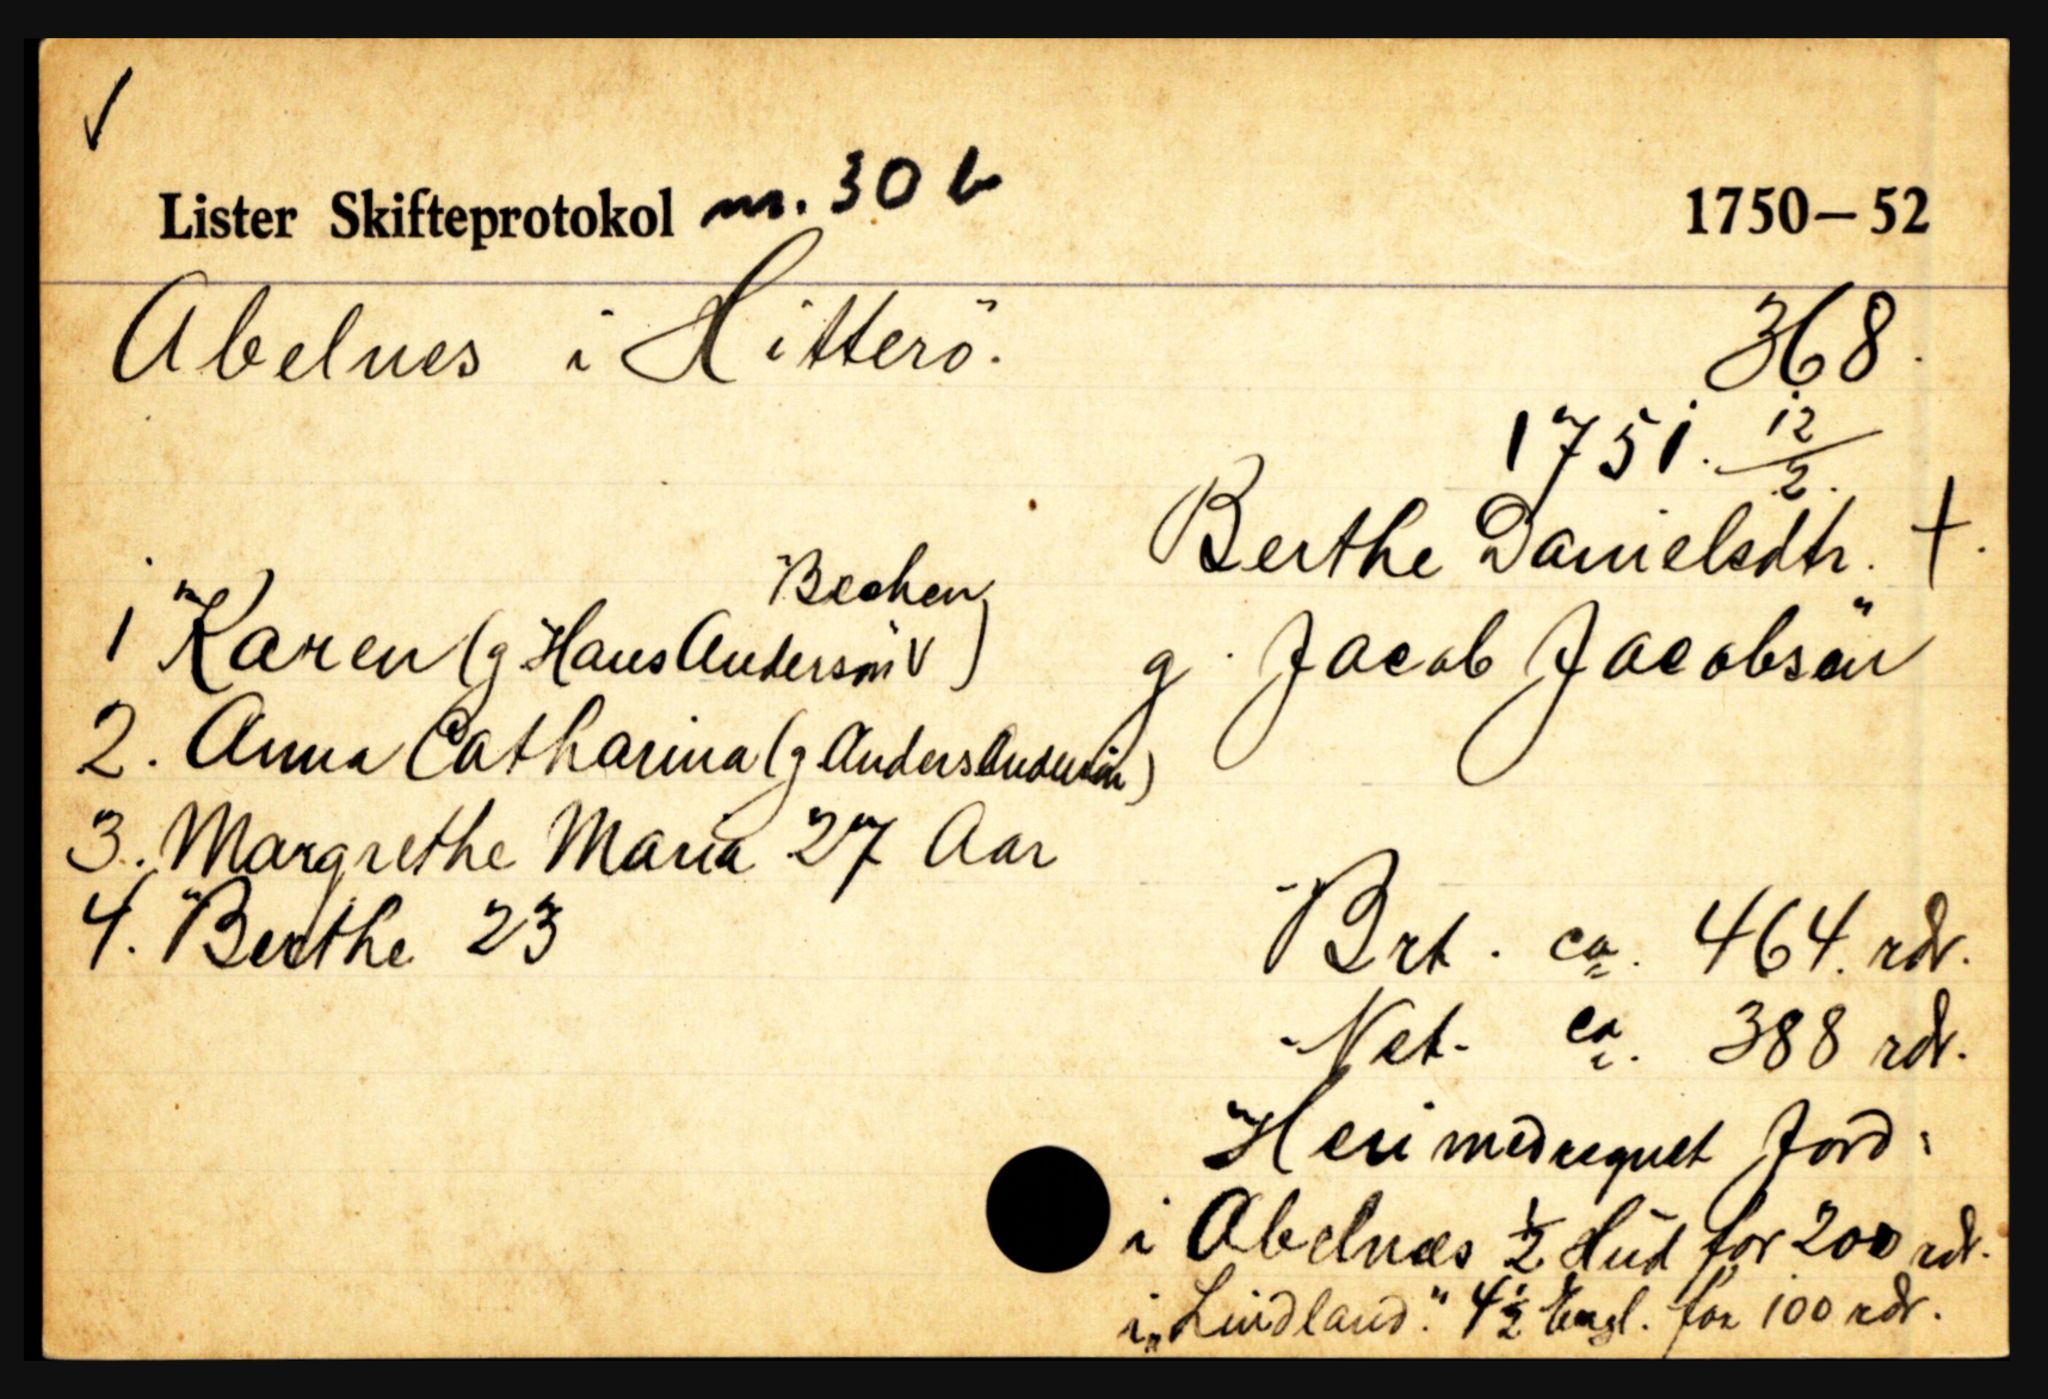 Lister Skifteprotokol nr. 30 b 1750–52
Abelnes i Hitterö. 368.
1751. 12/2.
Berthe Danielsdtr. †.
g. Jacob Jacobsön
1 Karen (g Hans Andersön v Bechen)
2. Anna Catharina (g Anders Andersön)
3. Margrethe Maria 27 Aar
4. Berthe 23
Brt. ca. 464. rdr.
Net. ca. 388 rdr.
Heri medregnet Jord:
i Abelnæs 1/2 Hud for 200 rdr.
i „Lindland." 4 1/2 Engl. for 100 rdr.